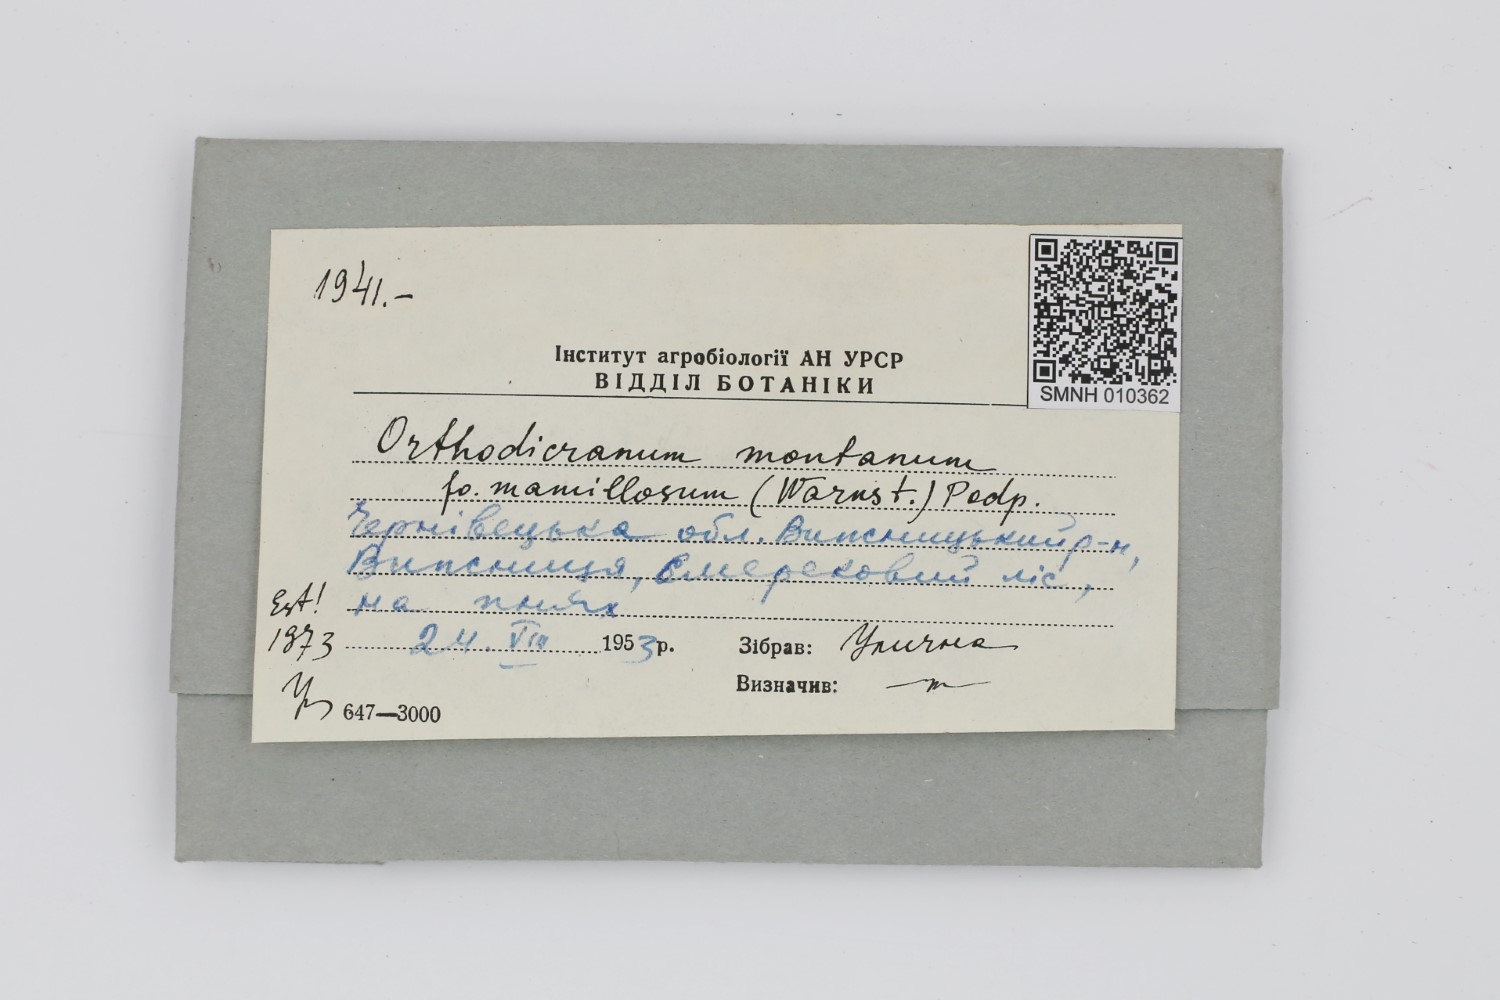 1941.-
SMNH 010362
Інститут агробіології АН УРСР
ВІДДІЛ БОТАНІКИ
Orthodicranum montanum
fo. mamillosum (Warnst.) Podp.
Чернівецька обл. Вижницький р-н,
Вижниця, Смерековий ліс,
на пнях
Est!
1973
24. VIII 1953 р.
Зібрав: Улична
Визначив: —"—
647—3000